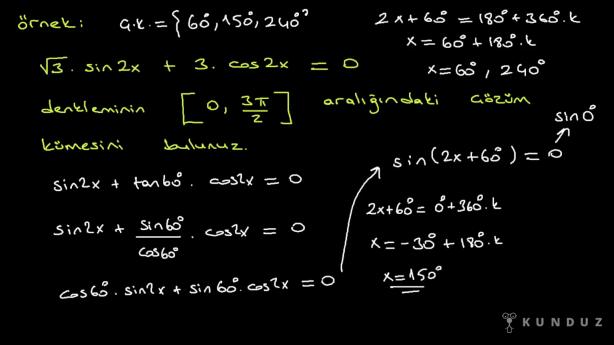 örnek: Ç.K.= {60°, 150°, 240°}
√3 . sin2x + 3 . cos2x = 0
denkleminin [0, 3π/2] aralığındaki çözüm
kümesini bulunuz.
sin2x + tan60° . cos2x = 0
sin2x + sin60°/cos60° . cos2x = 0
cos60° . sin2x + sin60° . cos2x = 0
sin(2x+60°) = 0
sin0°
2x+60° = 0°+360°.k
x = -30°+180°.k
x=150°
2x+60° = 180°+360°.k
x = 60°+180°.k
x=60°, 240°
KUNDUZ